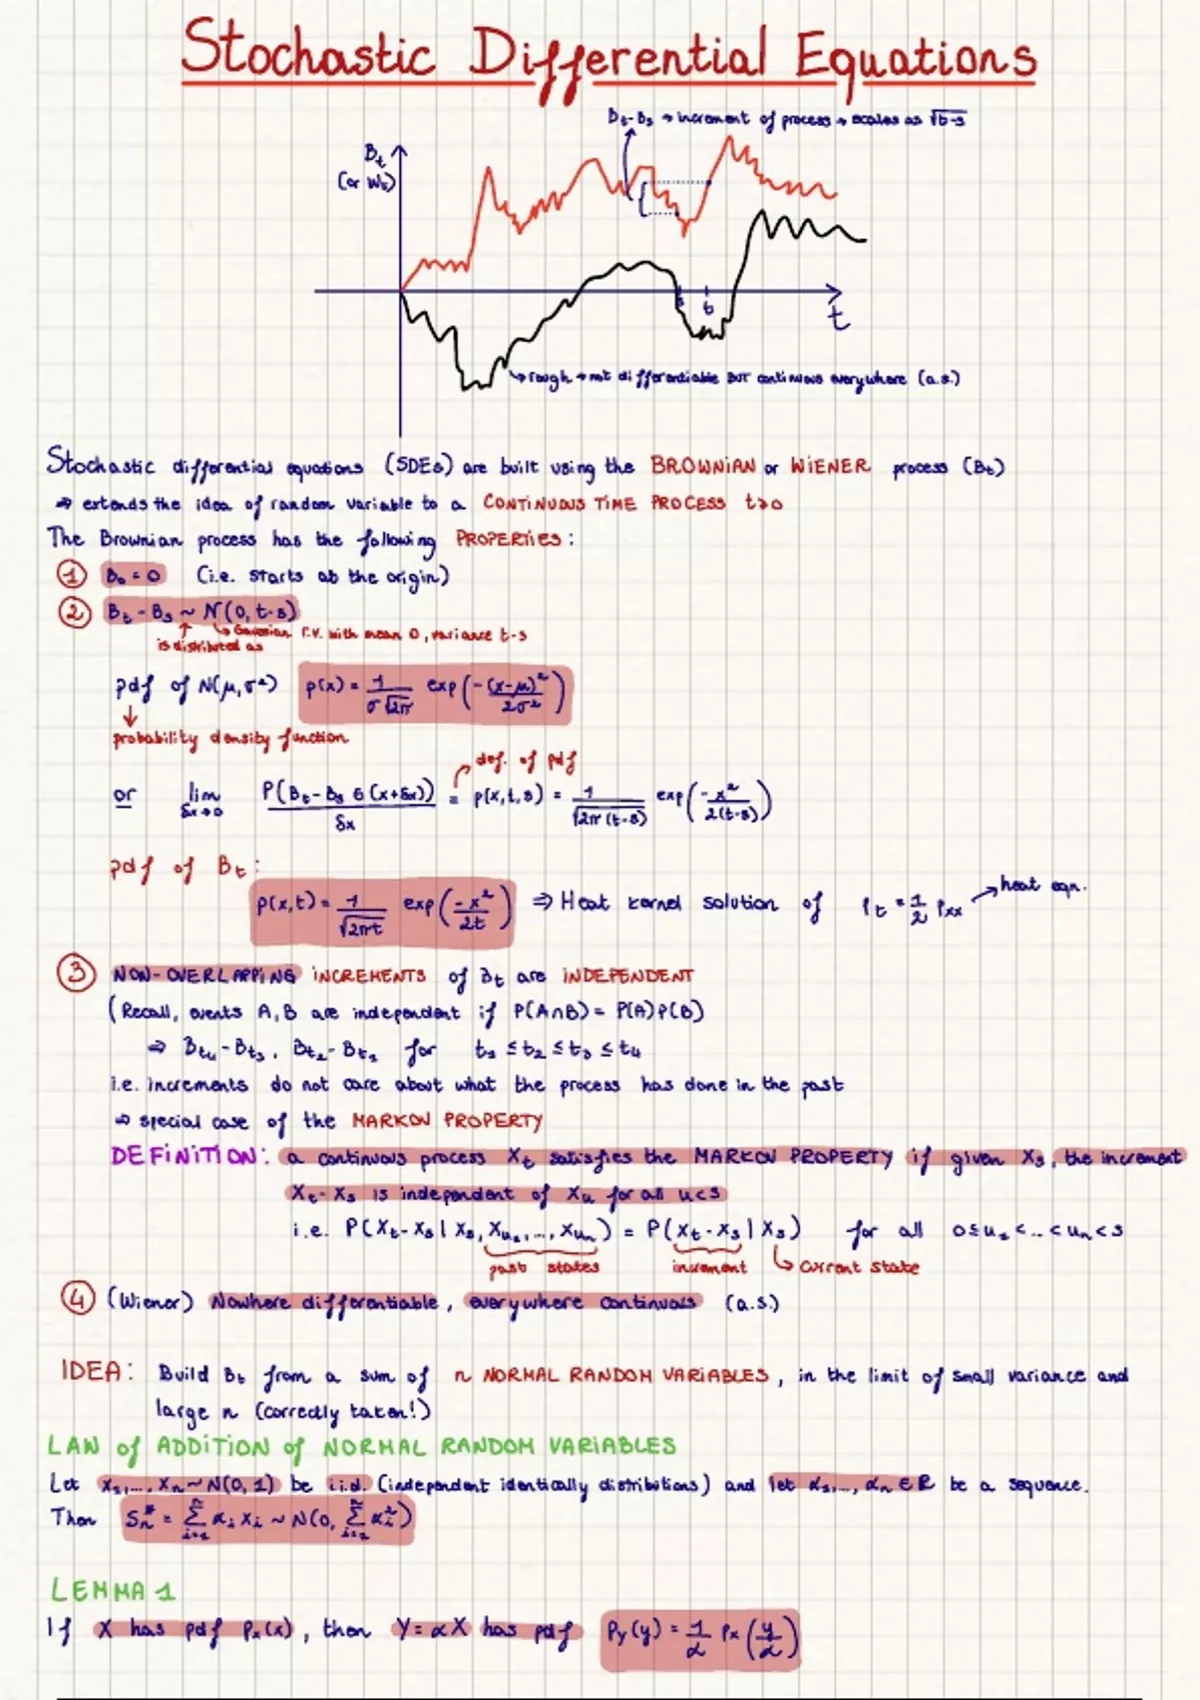 Stochastic Differential Equations
Bt-Bs → increment of process → scales as √t-s
Bt
(or Wt)
s
t
t
↳ rough → not differentiable BUT continuous everywhere (a.s.)
Stochastic differential equations (SDEs) are built using the BROWNIAN or WIENER process (Bt)
⇒ extends the idea of random variable to a CONTINUOUS TIME PROCESS t≥0
The Brownian process has the following PROPERTIES:
① B₀ = 0 (i.e. starts at the origin)
② Bt - Bs ~ N(0, t-s)
↳ Gaussian r.v. with mean 0, variance t-s
is distributed as
pdf of N(μ,σ²) p(x) = 1/(σ√2π) exp(-(x-μ)²/2σ²)
probability density function
def. of pdf
or lim δx→0 P(Bt-Bs ∈ (x+δx))/δx = p(x,t,s) = 1/√2π(t-s) exp(-x²/2(t-s))
pdf of Bt:
p(x,t) = 1/√2πt exp(-x²/2t) ⇒ Heat kernel solution of Pt = 1/2 Pxx → heat eqn.
③ NON-OVERLAPPING INCREMENTS of Bt are INDEPENDENT
(Recall, events A,B are independent if P(A∩B) = P(A)P(B)
⇒ Bt₄-Bt₃, Bt₂-Bt₁ for t₁ ≤ t₂ ≤ t₃ ≤ t₄
i.e. increments do not care about what the process has done in the past
⇒ special case of the MARKOV PROPERTY
DEFINITION: a continuous process Xt satisfies the MARKOV PROPERTY if given Xs, the increment
Xt-Xs is independent of Xu for all u<s
i.e. P(Xt-Xs | Xs, Xu₁,..., Xuₙ) = P(Xt-Xs | Xs) for all 0≤u₁<...<uₙ<s
past states increment ↳ current state
④ (Wiener) Nowhere differentiable, everywhere continuous (a.s.)
IDEA: Build Bt from a sum of n NORMAL RANDOM VARIABLES, in the limit of small variance and
large n (correctly taken!)
LAW of ADDITION of NORMAL RANDOM VARIABLES
Let X₁,..., Xₙ ~ N(0,1) be i.i.d. (independent identically distributions) and let α₁,..., αₙ ∈ R be a sequence.
Then Sₙ* = Σᵢ₌₁ⁿ αᵢ Xᵢ ~ N(0, Σᵢ₌₁ⁿ αᵢ²)
LEMMA 1
If X has pdf Px(x), then Y = αX has pdf Py(y) = 1/α Px(y/α)